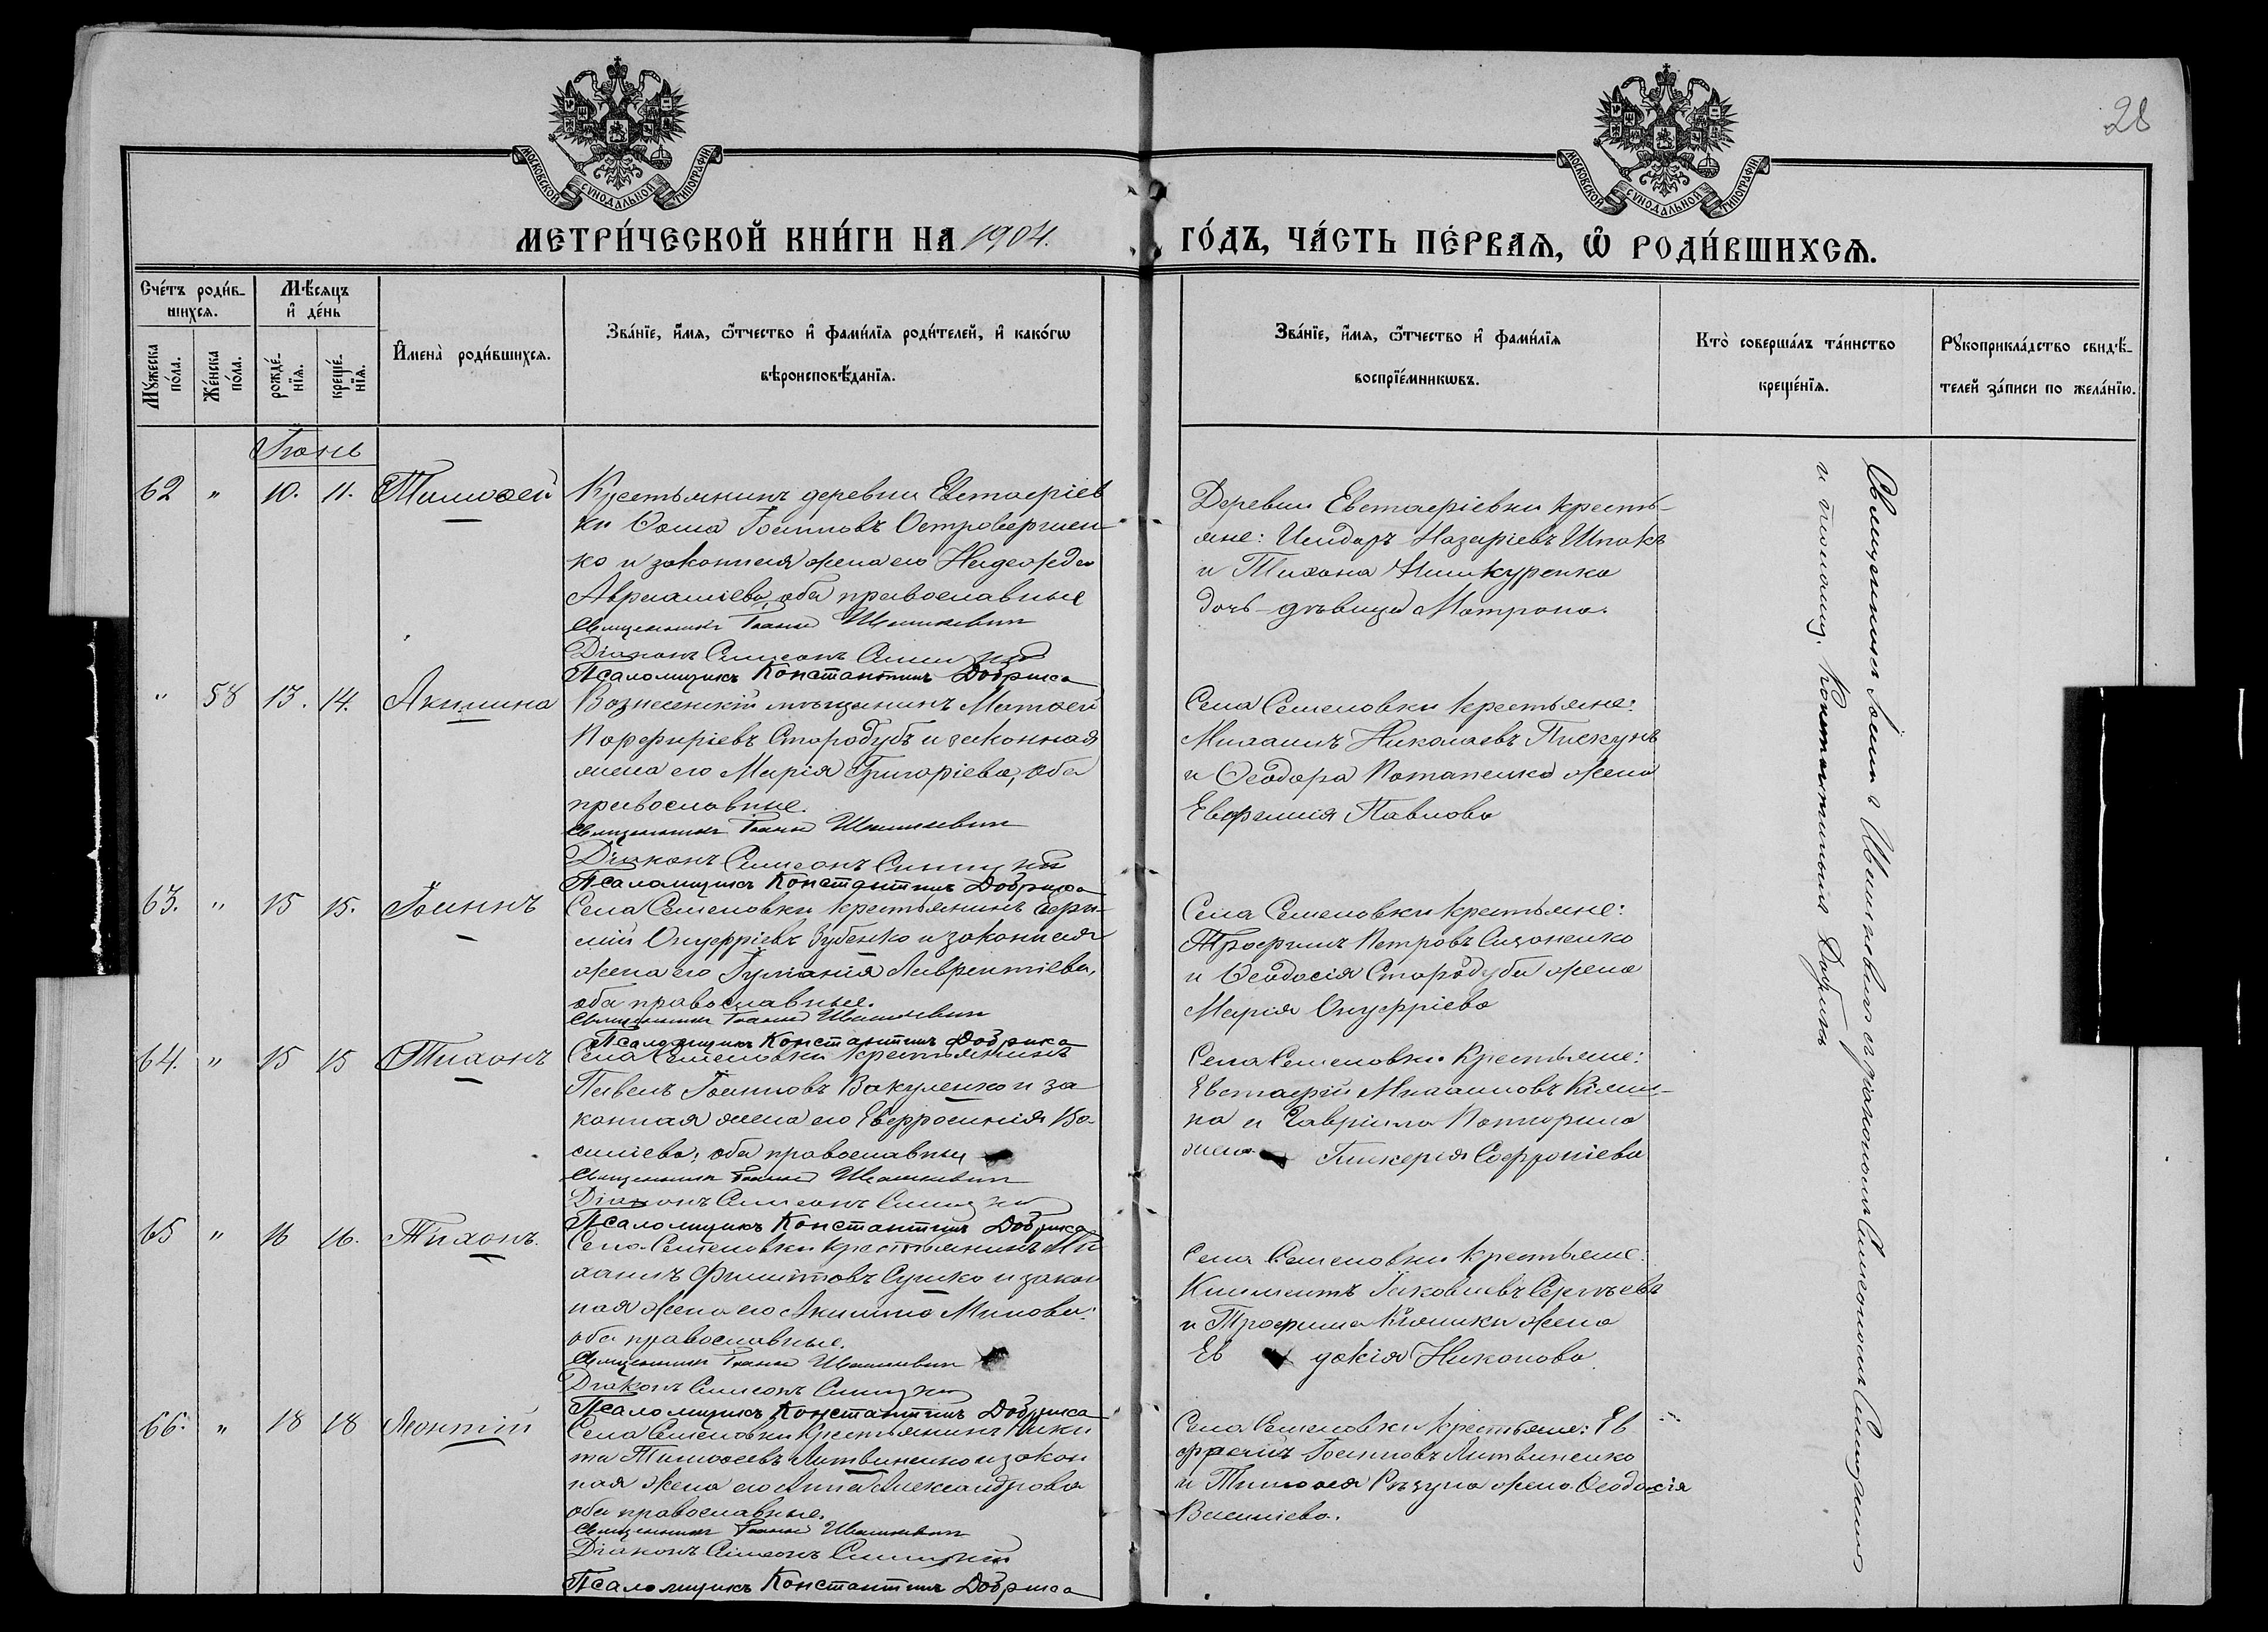 28
МОСКОВСКОЙ СѴНОДАЛЬНОЙ ТИПОГРАФІИ
МОСКОВСКОЙ СѴНОДАЛЬНОЙ ТИПОГРАФІИ
МЕТРИ́ЧЕСКОЙ КНИ́ГИ НА 1904. ГО́ДЪ, ЧА́СТЬ ПЕ́РВАѦ, Ѽ РОДИ́ВШИХСѦ.
Сче́тъ роди́в-
шихсѧ.
Мꙋ́жеска по́ла.
Же́нска по́ла.
Мѣ́сѧцъ и҆ де́нь
рожде́-нїѧ.
креще́-нїѧ.
И҆мена̀ роди́вшихсѧ.
Зва́нїе, и҆́мѧ, ѻ҆́тчество и҆ фами́лїѧ роди́телей, и҆ како́гѡ
вѣроисповѣ́данїѧ.
Зва́нїе, и҆́мѧ, ѻ҆́тчество и҆ фами́лїѧ
воспрїе́мникѡвъ.
Кто̀ соверша́лъ та́инство
креще́нїѧ.
Рꙋкоприкла́дство свидѣ́-
телей за́писи по жела́нїю.
Іюнь
62 " 10. 11. Тимоѳей
Крестьянинъ деревни Евстафіев
ки Ѳома Іоанновъ Островерхен-
ко и законная жена его Надежда
оба православные
Священникъ Іоаннъ Ивашкевич
Діаконъ Симеонъ
Псаломщикъ Константинъ Добрика
Деревни Евстафіевки кресть-
яне: Исидоръ Назаріевъ Шпакъ
и Тихона
дочь-дѣвица Матрона.
" 58 13. 14. Акилина
Вознесенскій мѣщанинъ Матѳей
Порфиріевъ Стародубъ и законная
жена его Марія Григоріева, оба
православные.
Священникъ Іоаннъ Ивашкевич
Діаконъ Симеонъ
Псаломщикъ Константинъ Добрика
Села Семеновки крестьяне:
Михаилъ Николаевъ Пискунъ
и Ѳеодора Потапенка жена
Евфимія Павлова
63. " 15 15. Іоаннъ
Села Семеновки крестьянинъ
Онуфріевъ Зубенко и законная
жена его Іуліанія Лаврентіева,
оба православные.
Священникъ Іоаннъ Ивашкевич
Псаломщикъ Константинъ Добрика
Села Семеновки крестьяне:
Трофимъ Петровъ Сизоненко
и Ѳеодосія Стародуба жена
Марія Онуфріева
64. " 15 15 Тихонъ
Села Семеновки крестьянинъ
Павелъ Іоанновъ Вакуленко и за
конная жена его Евфросинія Ва
силіева; оба православные
Священникъ Іоаннъ Ивашкевич
Діаконъ Симеонъ
Псаломщикъ Константинъ Добрика
Села Семеновки крестьяне:
Евстафій Михаиловъ
на и Гавріила
жена Гликерія Софроніева
65 " 16 16. Тихонъ.
Села Семеновки крестьянинъ Ми
хаилъ Филипповъ Сушко и закон
ная жена его Акилина Минова:
оба православные.
Священникъ Іоаннъ Ивашкевич
Діаконъ Симеонъ
Псаломщикъ Константинъ Добрика
Села Семеновки крестьяне:
Климентъ Іаковлевъ Сергѣевъ
и Трофима жена
Ев докія Никонова.
66. " 18 18 Леонтій
Села Семеновки крестьянинъ Ники
та Тимоѳеевъ Литвиненко и закон
ная жена его Анна Александрова
оба православные.
Священникъ Іоаннъ Ивашкевич
Діаконъ Симеонъ
Псаломщикъ Константинъ Добрика
Села Семеновки крестьяне: Ев
фимій Іоанновъ Литвиненко
и Тимоѳея жена Ѳеодосія
Василіева.
Священникъ Іоаннъ Ивашкевичъ съ діакономъ Симеономъ
и псаломщ. Константиномъ Добрика